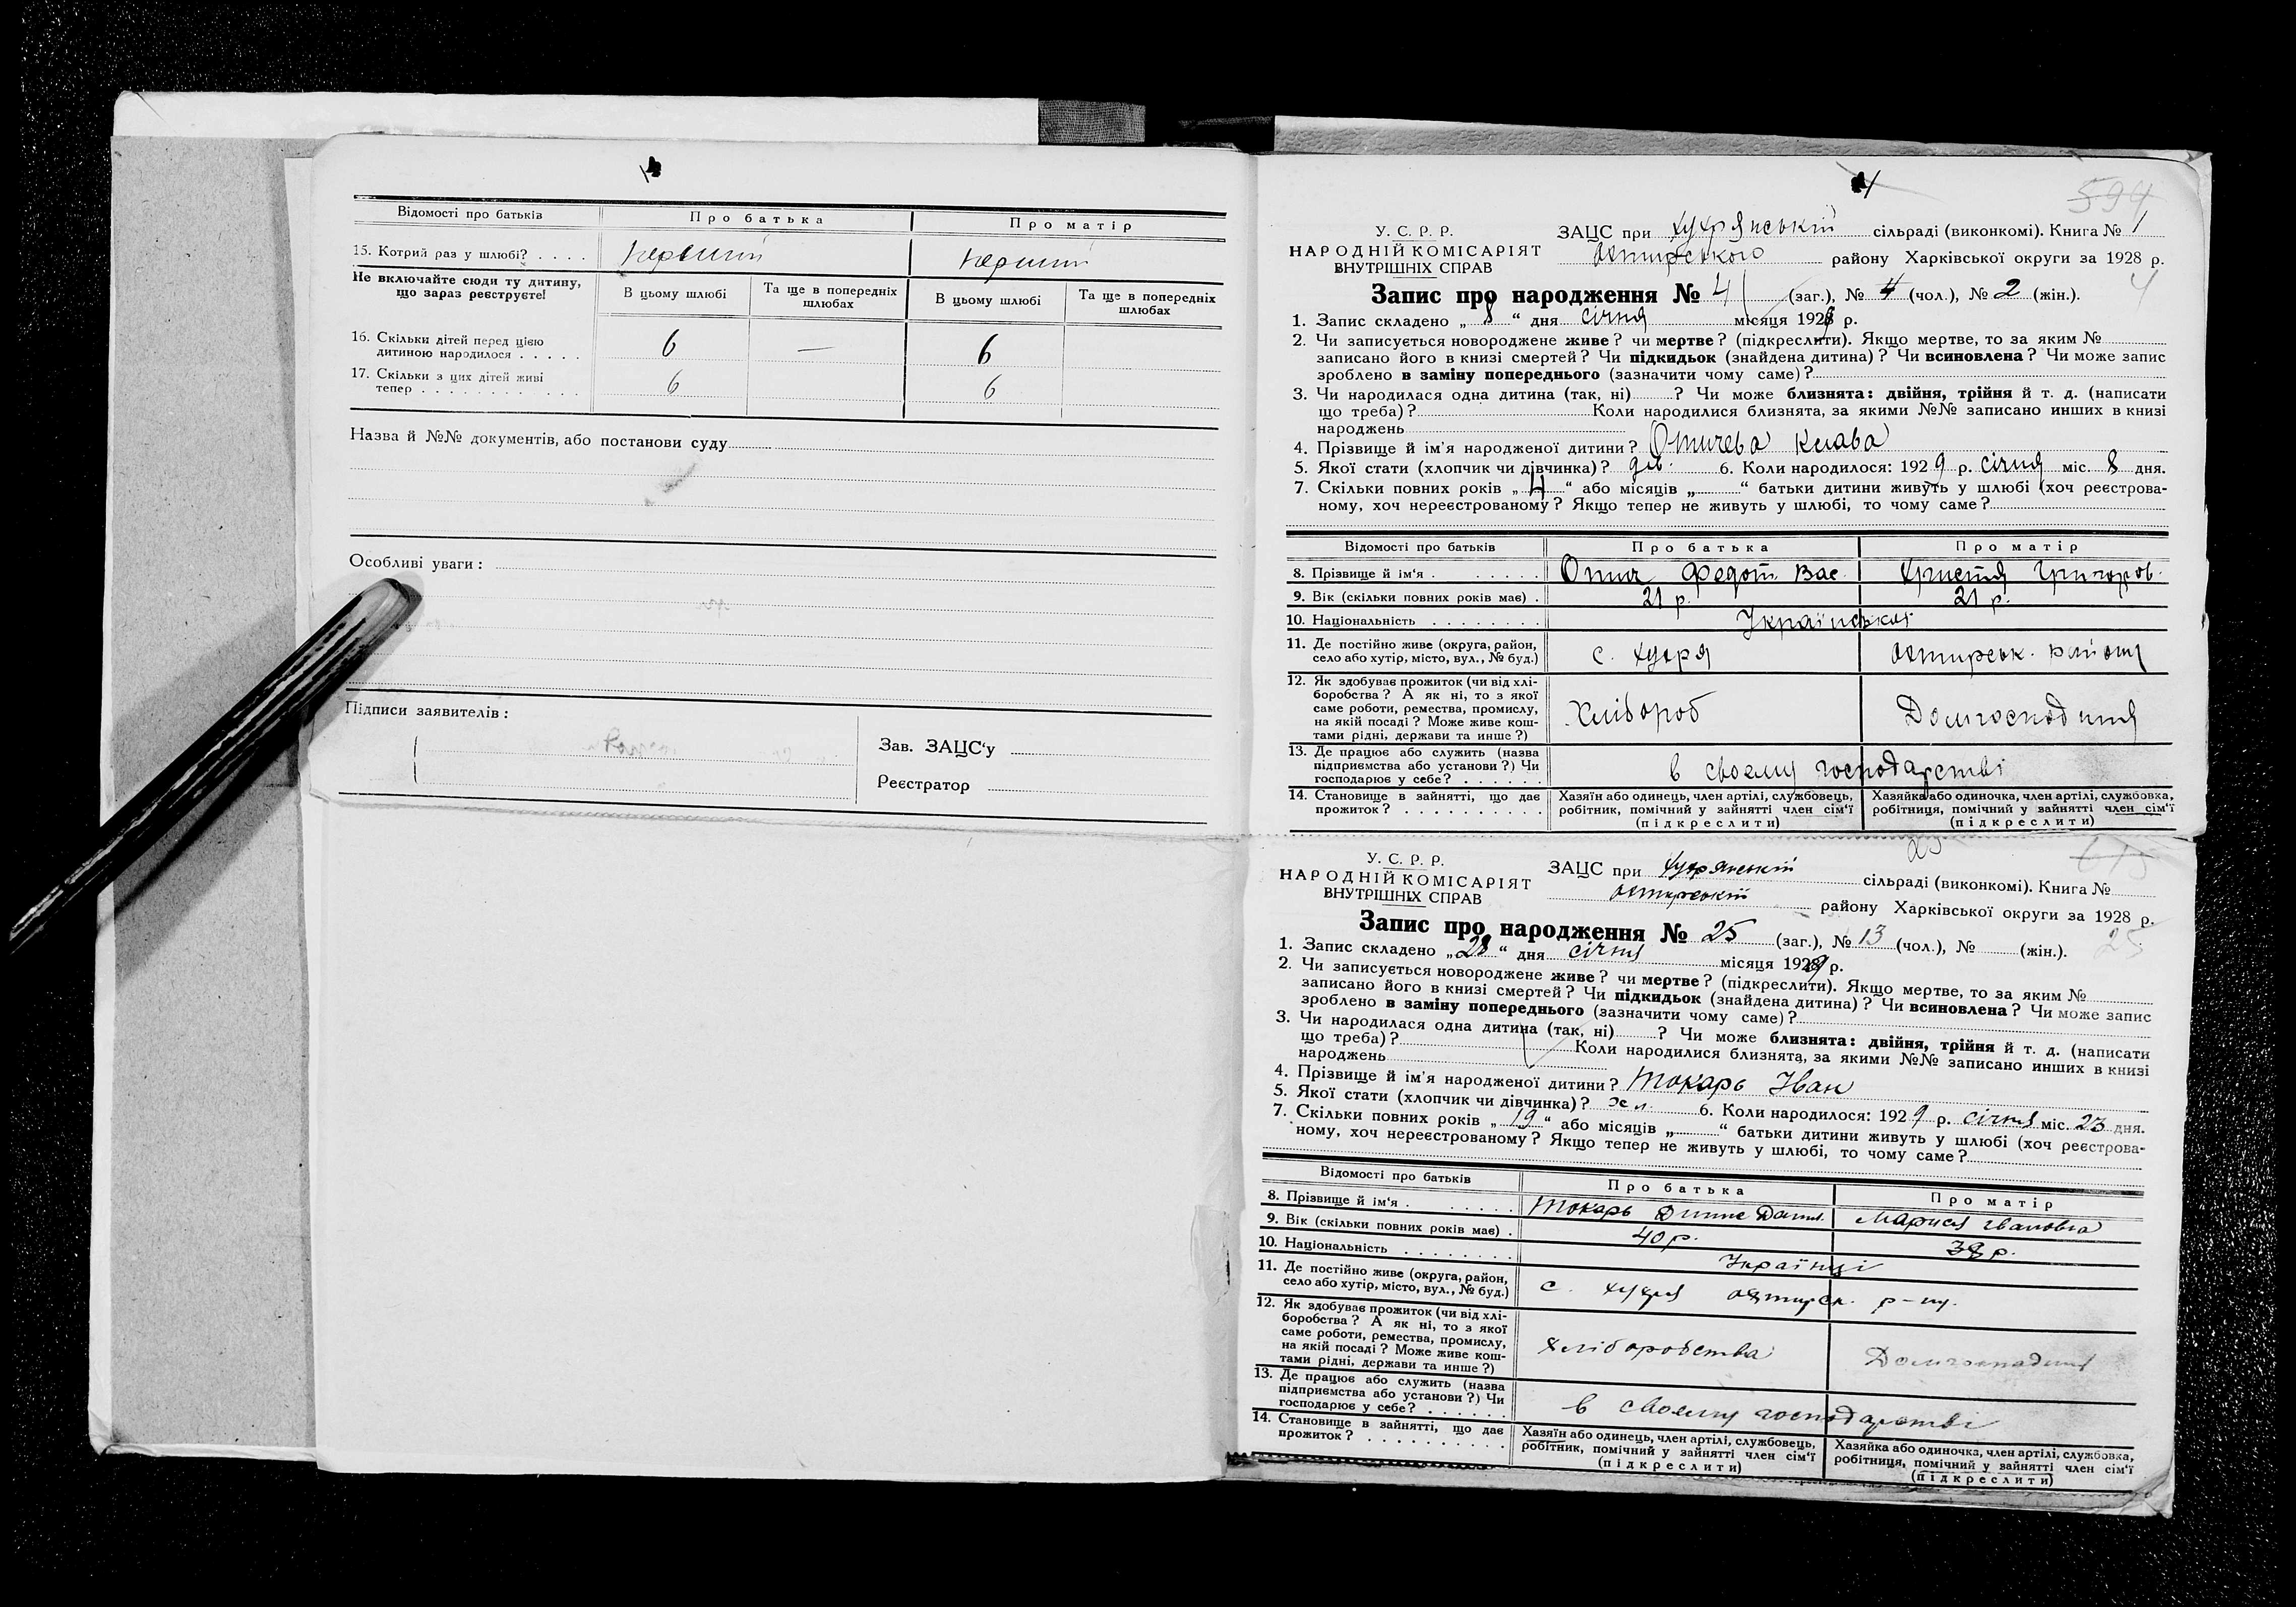 Відомості про батьків Про батька Про матір
15. Котрий раз у шлюбі? . . . . перший перший
Не включайте сюди ту дитину,
що зараз реєструєте!
В цьому шлюбі Та ще в попередніх шлюбах В цьому шлюбі Та ще в попередніх шлюбах
16. Скільки дітей перед цією
дитиною народилося . . . . . 6 — 6
17. Скільки з цих дітей живі
тепер . . . . . . . . . . . . 6 6
Назва й №№ документів, або постанови суду
Особливі уваги :
Підписи заявителів :
Зав. ЗАЦС'у
Реєстратор
594
У. С. Р. Р.
НАРОДНІЙ КОМІСАРІЯТ
ВНУТРІШНІХ СПРАВ
ЗАЦС при Хухрянській сільраді (виконкомі). Книга № 1
Охтирського району Харківської округи за 1928 р.
4
Запис про народження № 4 (заг.), № 4 (чол.), № 2 (жін.).
1. Запис складено „ 8 “ дня січня місяця 1929 р.
2. Чи записується новороджене живе? чи мертве? (підкреслити). Якщо мертве, то за яким №
записано його в книзі смертей? Чи підкидьок (знайдена дитина)? Чи всиновлена? Чи може запис
зроблено в заміну попереднього (зазначити чому саме)?
3. Чи народилася одна дитина (так, ні) ? Чи може близнята: двійня, трійня й т. д. (написати
що треба)? Коли народилися близнята, за якими №№ записано инших в книзі
народжень
4. Прізвище й ім'я народженої дитини? Отичева Клава
5. Якої стати (хлопчик чи дівчинка)? дів. 6. Коли народилося: 1929 р. січня міс. 8 дня.
7. Скільки повних років „ 4 “ або місяців „ “ батьки дитини живуть у шлюбі (хоч реєстрова-
ному, хоч нереєстрованому? Якщо тепер не живуть у шлюбі, то чому саме?
Відомості про батьків Про батька Про матір
8. Прізвище й ім'я . . . . . . . Отич Федот Вас. Христя Григоров.
9. Вік (скільки повних років має) . 21 р. 21 р.
10. Національність . . . . . . . . Українські
11. Де постійно живе (округа, район,
село або хутір, місто, вул., № буд.) с. Хухря Охтирськ. району
12. Як здобуває прожиток (чи від хлі-
боробства? А як ні, то з якої
саме роботи, ремества, промислу,
на якій посаді? Може живе кош-
тами рідні, держави та инше?) Хлібороб Домгосподиня
13. Де працює або служить (назва
підприємства або установи?) Чи
господарює у себе? . . . . . . в своєму господарстві
14. Становище в зайнятті, що дає
прожиток? . . . . . . . . . .
Хазяїн або одинець, член артілі, службовець,
робітник, помічний у зайнятті член сім'ї
(підкреслити)
Хазяйка або одиночка, член артілі, службовка,
робітниця, помічний у зайнятті член сім'ї
(підкреслити)
25
У. С. Р. Р.
НАРОДНІЙ КОМІСАРІЯТ
ВНУТРІШНІХ СПРАВ
ЗАЦС при Хухрянській сільраді (виконкомі). Книга №
Охтирській району Харківської округи за 1928 р.
25
Запис про народження № 25 (заг.), № 13 (чол.), № (жін.).
1. Запис складено „ 28 “ дня січня місяця 1929 р.
2. Чи записується новороджене живе? чи мертве? (підкреслити). Якщо мертве, то за яким №
записано його в книзі смертей? Чи підкидьок (знайдена дитина)? Чи всиновлена? Чи може запис
зроблено в заміну попереднього (зазначити чому саме)?
3. Чи народилася одна дитина (так, ні) ? Чи може близнята: двійня, трійня й т. д. (написати
що треба)? Коли народилися близнята, за якими №№ записано инших в книзі
народжень
4. Прізвище й ім'я народженої дитини? Токарь Іван
5. Якої стати (хлопчик чи дівчинка)? хл. 6. Коли народилося: 1929 р. січня міс. 23 дня.
7. Скільки повних років „ 19 “ або місяців „ “ батьки дитини живуть у шлюбі (хоч реєстрова-
ному, хоч нереєстрованому? Якщо тепер не живуть у шлюбі, то чому саме?
Відомості про батьків Про батька Про матір
8. Прізвище й ім'я . . . . . . . Токарь Марися Івановна
9. Вік (скільки повних років має) . 40 р. 38 р.
10. Національність . . . . . . . . Українці
11. Де постійно живе (округа, район,
село або хутір, місто, вул., № буд.) с. Хухря Охтирск. р-ну.
12. Як здобуває прожиток (чи від хлі-
боробства? А як ні, то з якої
саме роботи, ремества, промислу,
на якій посаді? Може живе кош-
тами рідні, держави та инше?) Хліборобства Домгосподиня
13. Де працює або служить (назва
підприємства або установи?) Чи
господарює у себе? . . . . . . в своєму господарстві
14. Становище в зайнятті, що дає
прожиток? . . . . . . . . . .
Хазяїн або одинець, член артілі, службовець,
робітник, помічний у зайнятті член сім'ї
(підкреслити)
Хазяйка або одиночка, член артілі, службовка,
робітниця, помічний у зайнятті член сім'ї
(підкреслити)